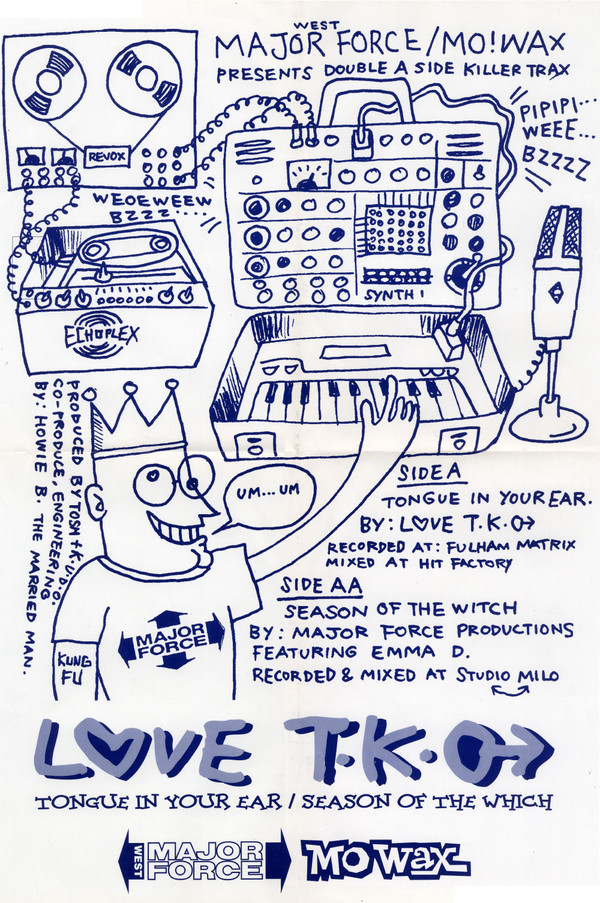 WEST
MAJOR FORCE/MO!WAX
PRESENTS DOUBLE A SIDE KILLER TRAX
PIPIPI...
WEEE...
BZZZZ
REVOX
WEOEWEEW
BZZZ.....
SYNTH 1
ECHOPLEX
PRODUCED BY TOSH + K.U.D.O.
CO-PRODUCE, ENGINEERING
BY: HOWIE B. THE MARRIED MAN.
UM...UM
SIDE A
TONGUE IN YOUR EAR.
BY: L♡VE T.K.O→
RECORDED AT: FULHAM MATRIX
MIXED AT HIT FACTORY
SIDE AA
SEASON OF THE WITCH
BY: MAJOR FORCE PRODUCTIONS
FEATURING EMMA D.
RECORDED & MIXED AT STUDIO MILO
MAJOR
FORCE
KUNG
FU
L♥VE T.K.O→
TONGUE IN YOUR EAR / SEASON OF THE WHICH
WEST
MAJOR
FORCE
MO WAX